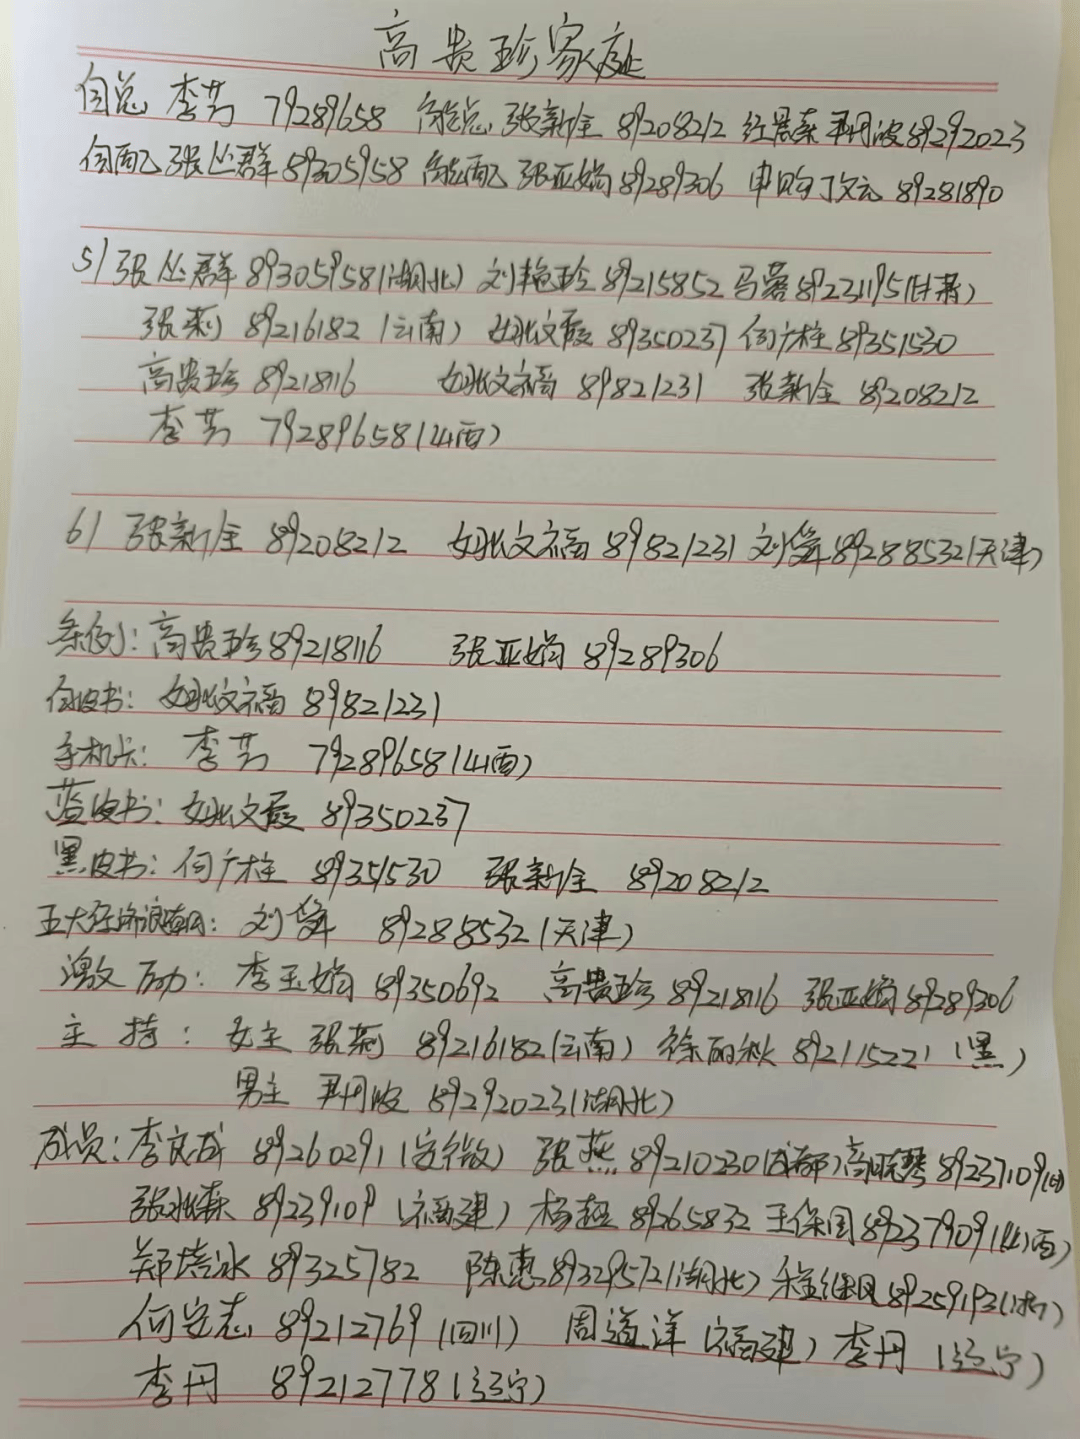 高贵珍家庭
自总 李芳 79289658 能总 张新全 89208212 经晨森 尹丹波 89292023
自配 张丛群 89305958 能配 张亚娟 89289306 申购 丁文元 89281890
5) 张丛群 89305958(湖北) 刘艳珍 89215852 马蓉 89231195(甘肃)
张莉 89216182 (云南) 姚文霞 89350237 何广柱 89351530
高贵珍 89218116 姚文福 89821231 张新全 89208212
李芳 79289658(山西)
6) 张新全 89208212 姚文福 89821231 刘华 89288532(天津)
条例: 高贵珍 89218116 张亚娟 89289306
白皮书: 姚文福 89821231
手机卡: 李芳 79289658(山西)
蓝皮书: 姚文霞 89350237
黑皮书: 何广柱 89351530 张新全 89208212
五大经济浪潮: 刘华 89288532(天津)
激励: 李玉娟 89350692 高贵珍 89218116 张亚娟 89289306
主持: 女主 张莉 89216182(云南) 徐丽秋 89211522 (黑)
男主 尹丹波 89292023(湖北)
成员: 李文成 89260291(安徽) 张燕 89210230(成都) 高晓琴 89237109
张兆森 89239109 (福建) 杨超 89265832 王保国 89237909(山西)
郑培冰 89325782 陈惠 89329572(湖北) 程继风 89259193
何安志 89212769 (四川) 周道洋 (福建) 李丹 (辽宁)
李丹 89212778(辽宁)